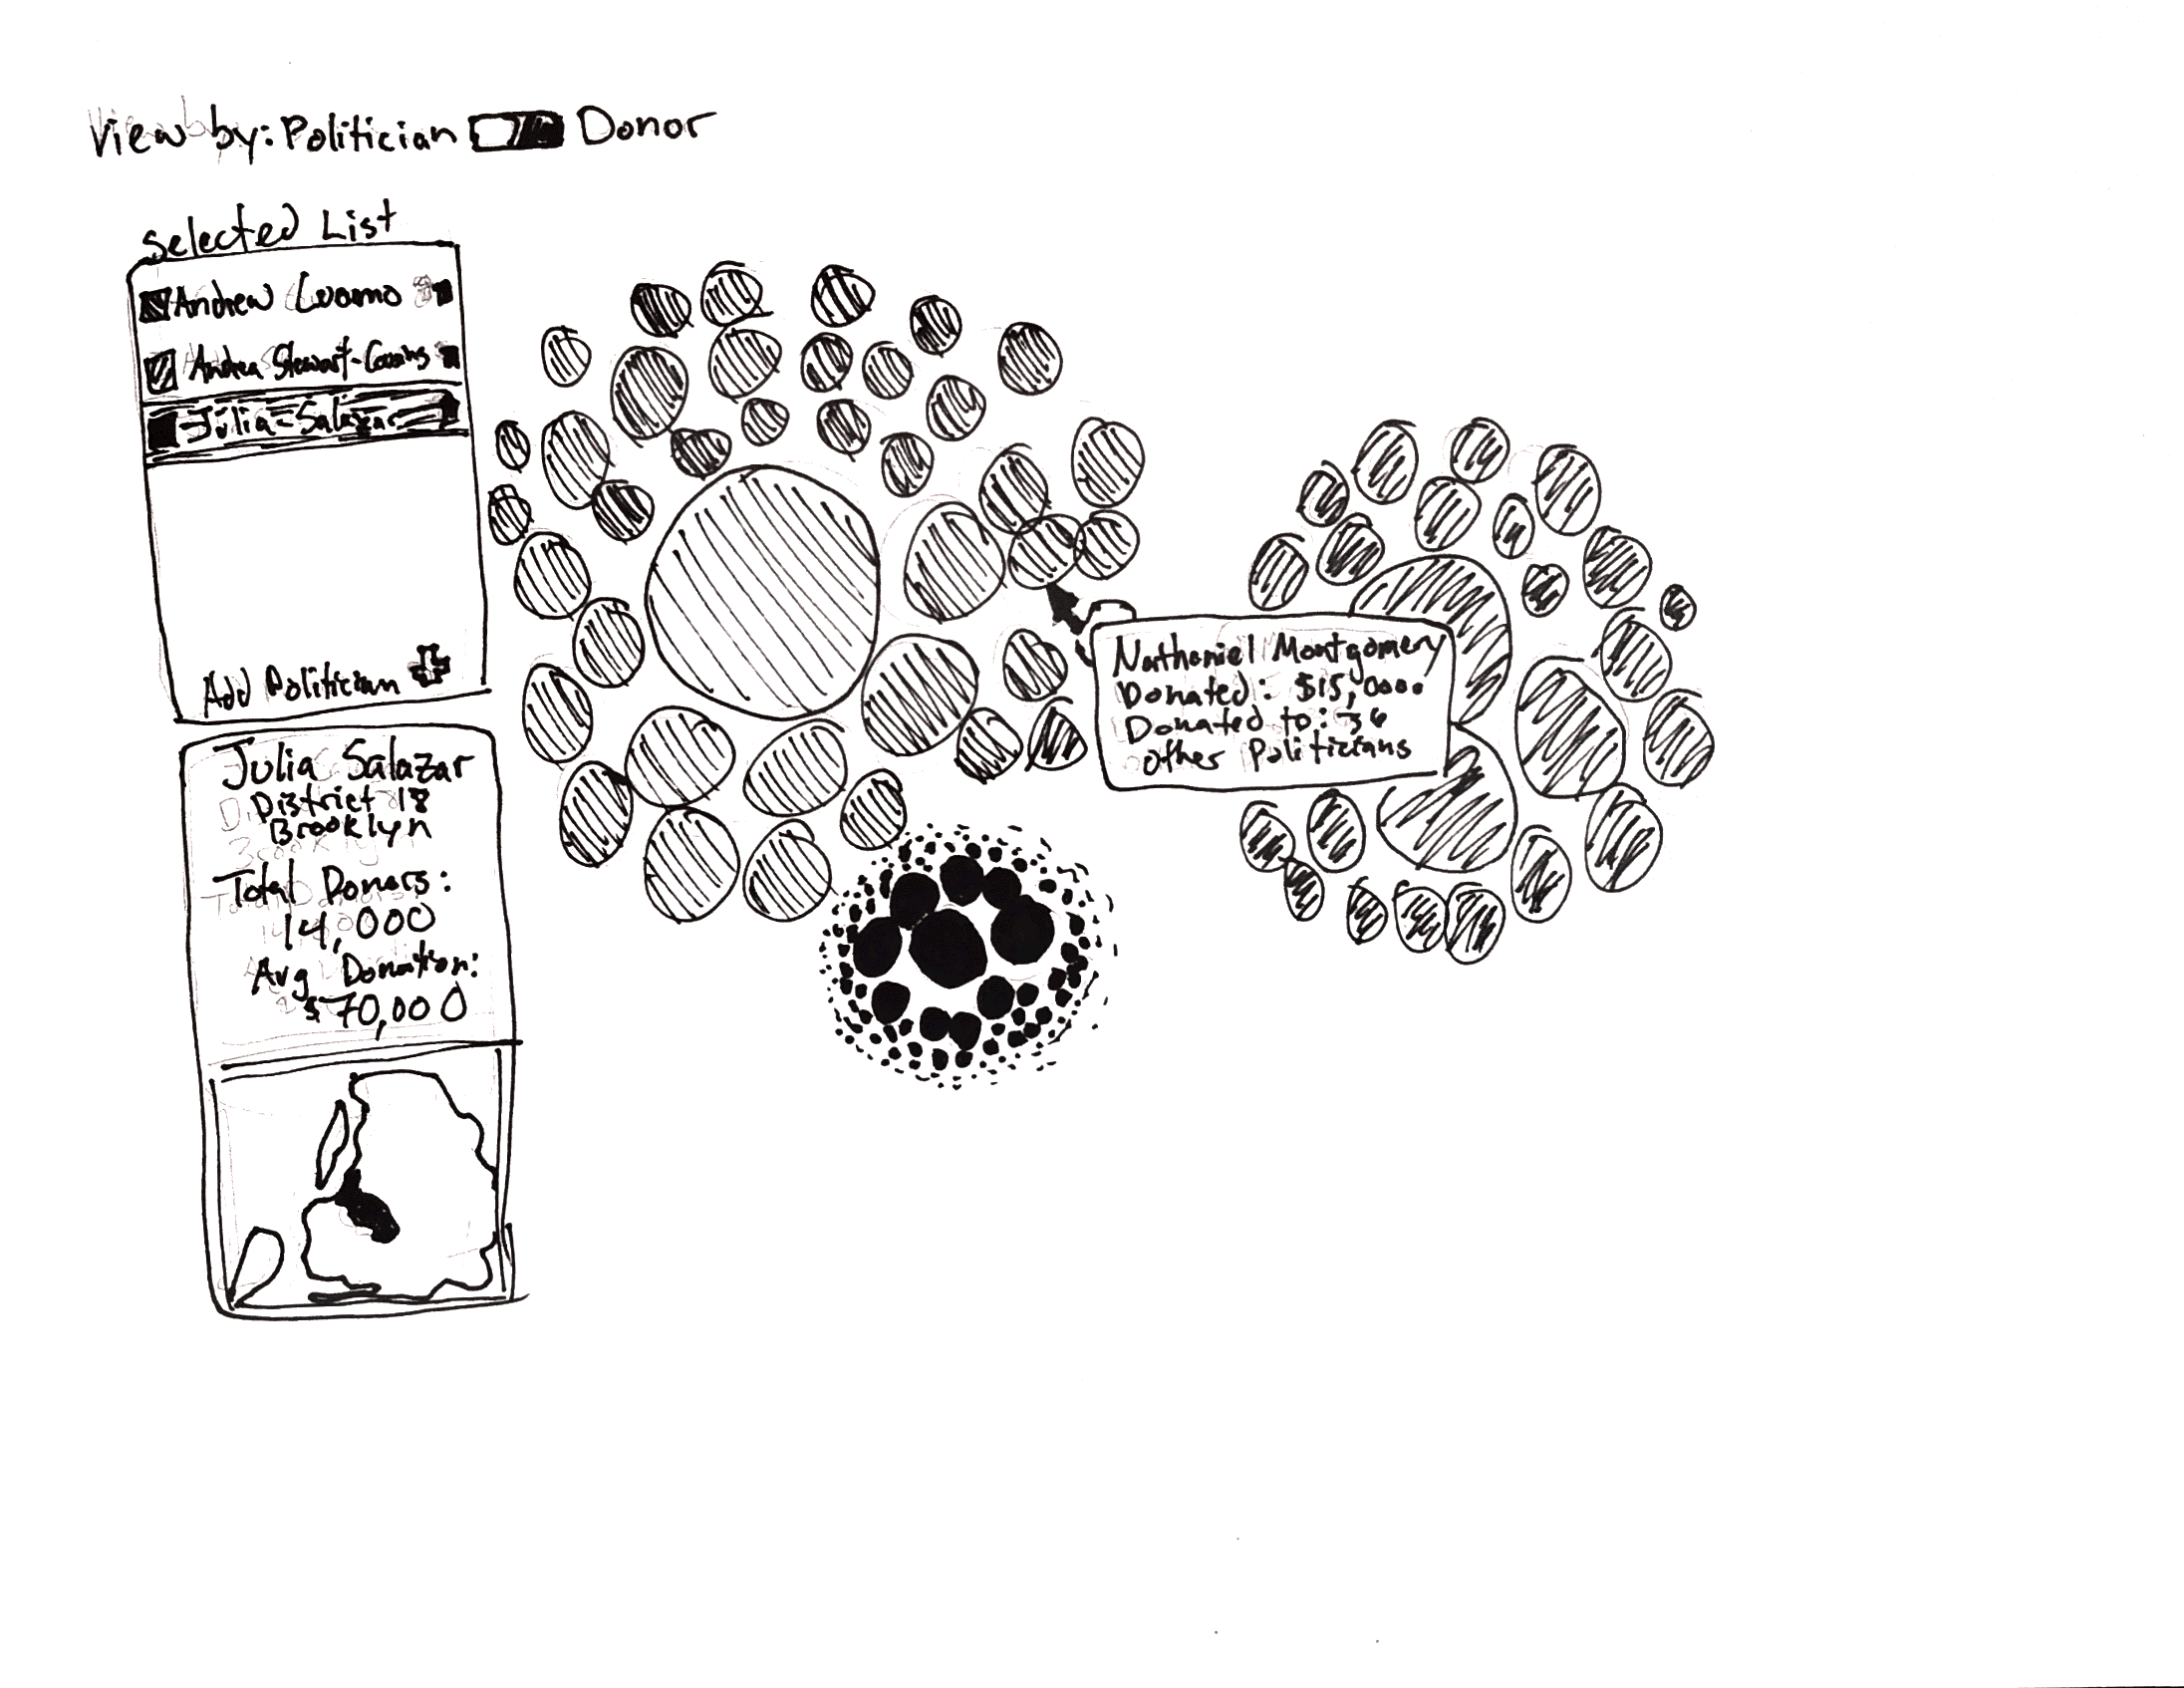 View by: Politician Donor
Selected List
Andrew Cuomo
Andrea Stewart-Cousins
Julia Salazar
Add Politician
Julia Salazar
District 18
Brooklyn
Total Donors:
14,000
Avg Donation:
$70,000
Nathaniel Montgomery
Donated: $15,000
Donated to: 36
other Politicians